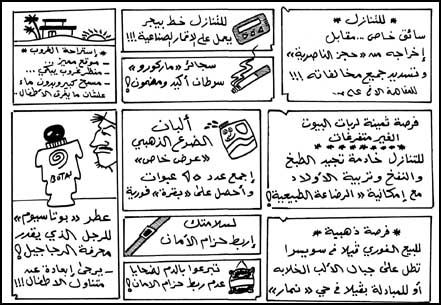 « للتنازل »
سائق خاص .. مقابل
إخراجه من «حجز الناصرية»
وتسديد جميع مخالفاته !!!
للتنازل خط بيجر
يعمل على الاقمار الصناعية !!!
سجائر «ماركورو»
سرطان أكيد ومضمون ؟
* إستراحة الغروب *
- موقع مميز ..
- منظر غروب
- مسبح كبير وبدون ماء
علشان ما يغرق الأطفال ..!
فرصة ثمينة لربات البيوت
الغير متفرغات
للتنازل خادمة تجيد الطبخ
والنفخ وتربية الأولاد
مع إمكانية «الرضاعة الطبيعية» ؟
ألبان
الضرع الذهبي
«عرض خاص»
إجمع عدد ٩٥ عبوات
وأحصل على «بقرة» فورية
BOTAS
عطر «بوتاسيوم»
للرجل الذي يقدر
معرفة الرجاجيل ؟
- يرجى إبعاده عن
متناول الأطفال !!!
* فرصة ذهبية *
للبيع الفوري فيلا في سويسرا
تطل على جبال الألب الخلابه
أو للمبادلة بفيلا في حي «نمار» !
لسلامتك
إربط حزام الأمان
تبرعوا بالدم لضحايا
عدم ربط حزام الأمان ؟